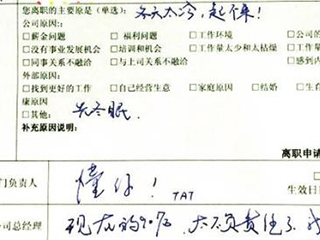 您离职的主要原是(单选): 冬天太冷,起不来!
公司原因:
□薪金问题 □福利问题 □工作环境 □公司的
□没有事业发展机会 □培训和机会 □工作量太少和太枯燥 □工作
□同事关系不融洽 □与上司关系不融洽 □感到内
外部原因:
□找到更好的工作 □自己经营生意 □家庭原因 □结婚 □生
康原因
□其他: 去冬眠.
补充原因说明:
离职申请
门负责人 懂你! TAT 生效日
公司总经理 现在的90后,太不负责任了